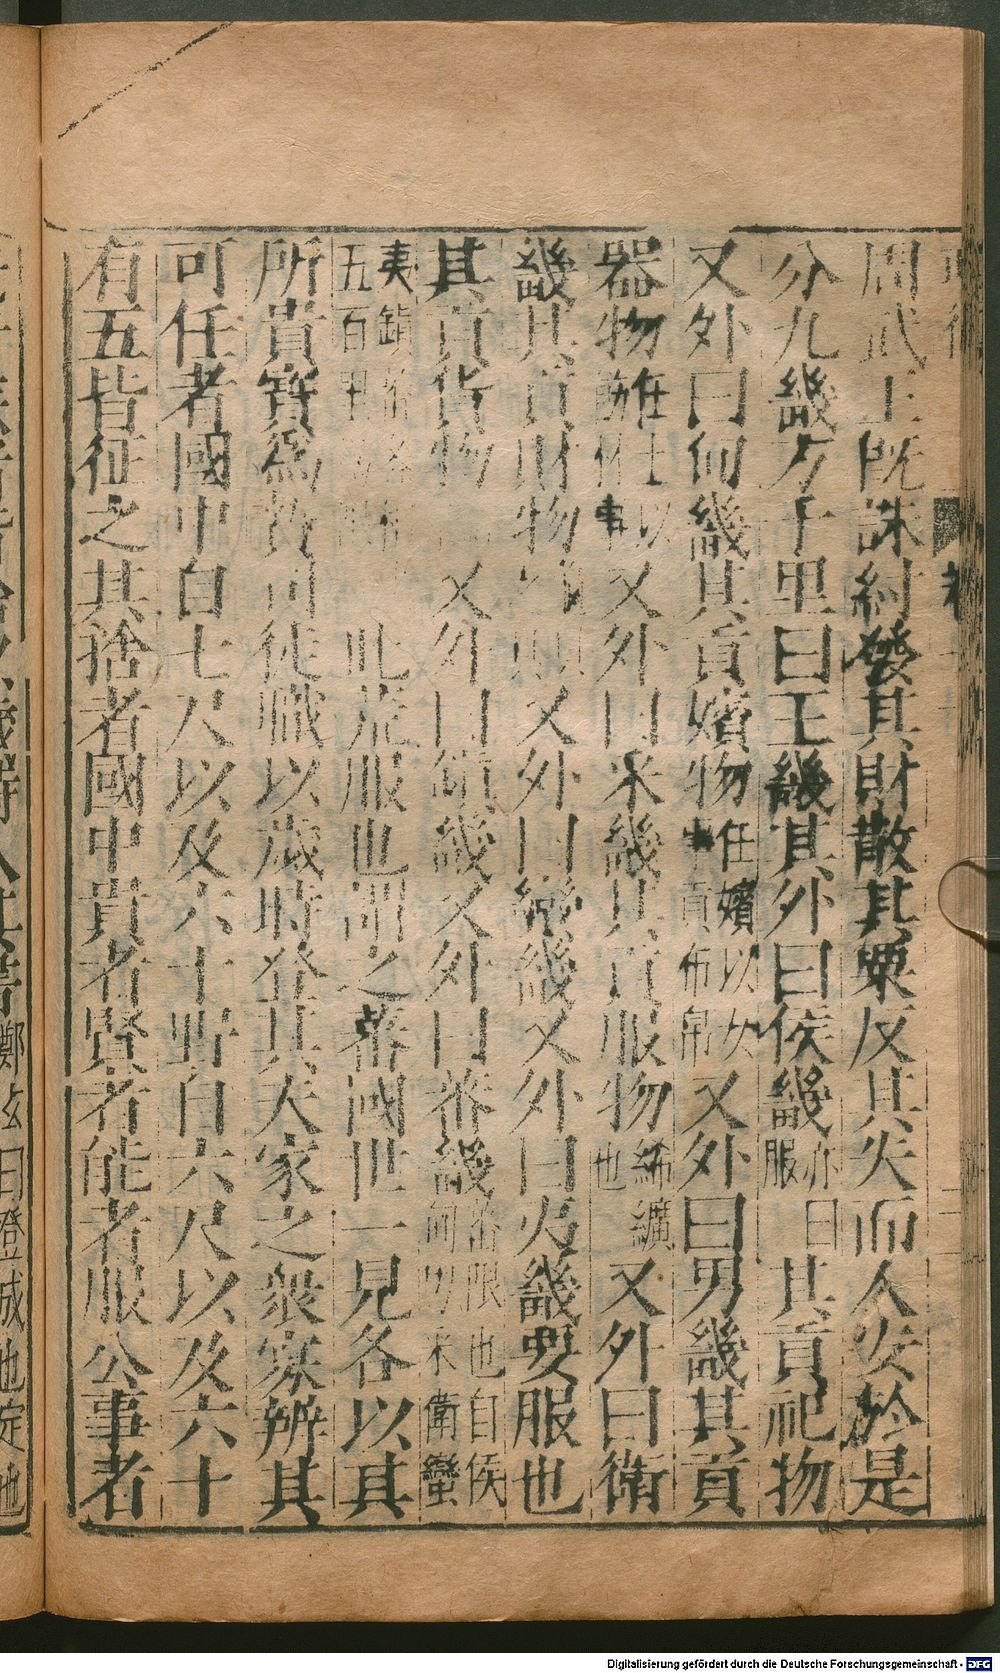 周武王既誅紂發其財散其粟反其失而人安於是
分九畿方千里曰王畿其外曰侯畿亦曰服其貢祀物
又外曰甸畿其貢嬪物任嬪以女事貢布帛又外曰男畿其貢
器物任以事又外曰采畿其貢服物絺纊也又外曰衛
畿其貢財物又外曰蠻畿又外曰夷畿要服也
其貢貨物又外曰鎮畿又外曰蕃畿蕃限也自侯甸男采衛蠻
夷鎮五百里此荒服也謂之蕃國世一見各以其
所貴寶為贄司徒職以歲時登其夫家之衆寡辨其
可任者國中自七尺以及六十野自六尺以及六十
有五皆征之其捨者國中貴者賢者能者服公事者
鄭玄曰登成也定也
Digitalisierung gefördert durch die Deutsche Forschungsgemeinschaft - DFG